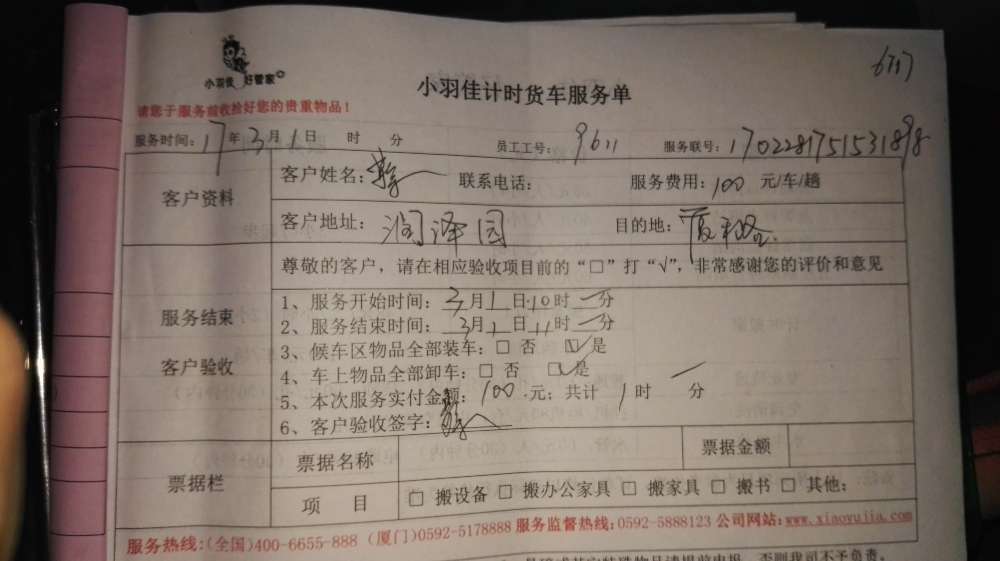 小羽佳 好管家
小羽佳计时货车服务单
请您于服务前收捡好您的贵重物品！
服务时间：17年3月1日 时 分 员工工号：9611 服务联号：
客户资料
客户姓名： 联系电话： 服务费用：100 元/车/趟
客户地址：润泽园 目的地：
尊敬的客户，请在相应验收项目前的“□”打“√”，非常感谢您的评价和意见
服务结束
客户验收
1、服务开始时间：3月1日10时一分
2、服务结束时间：3月1日11时一分
3、候车区物品全部装车：□ 否 ☑是
4、车上物品全部卸车：□ 否 ☑是
5、本次服务实付金额：100元；共计 1时 一 分
6、客户验收签字：
票据栏
票据名称 票据金额
项 目 □ 搬设备 □ 搬办公家具 □ 搬家具 □ 搬书 □ 其他：
服务热线：(全国)400-6655-888 (厦门)0592-5178888 服务监督热线：0592-5888123 公司网站：www.xiaoyujia.com